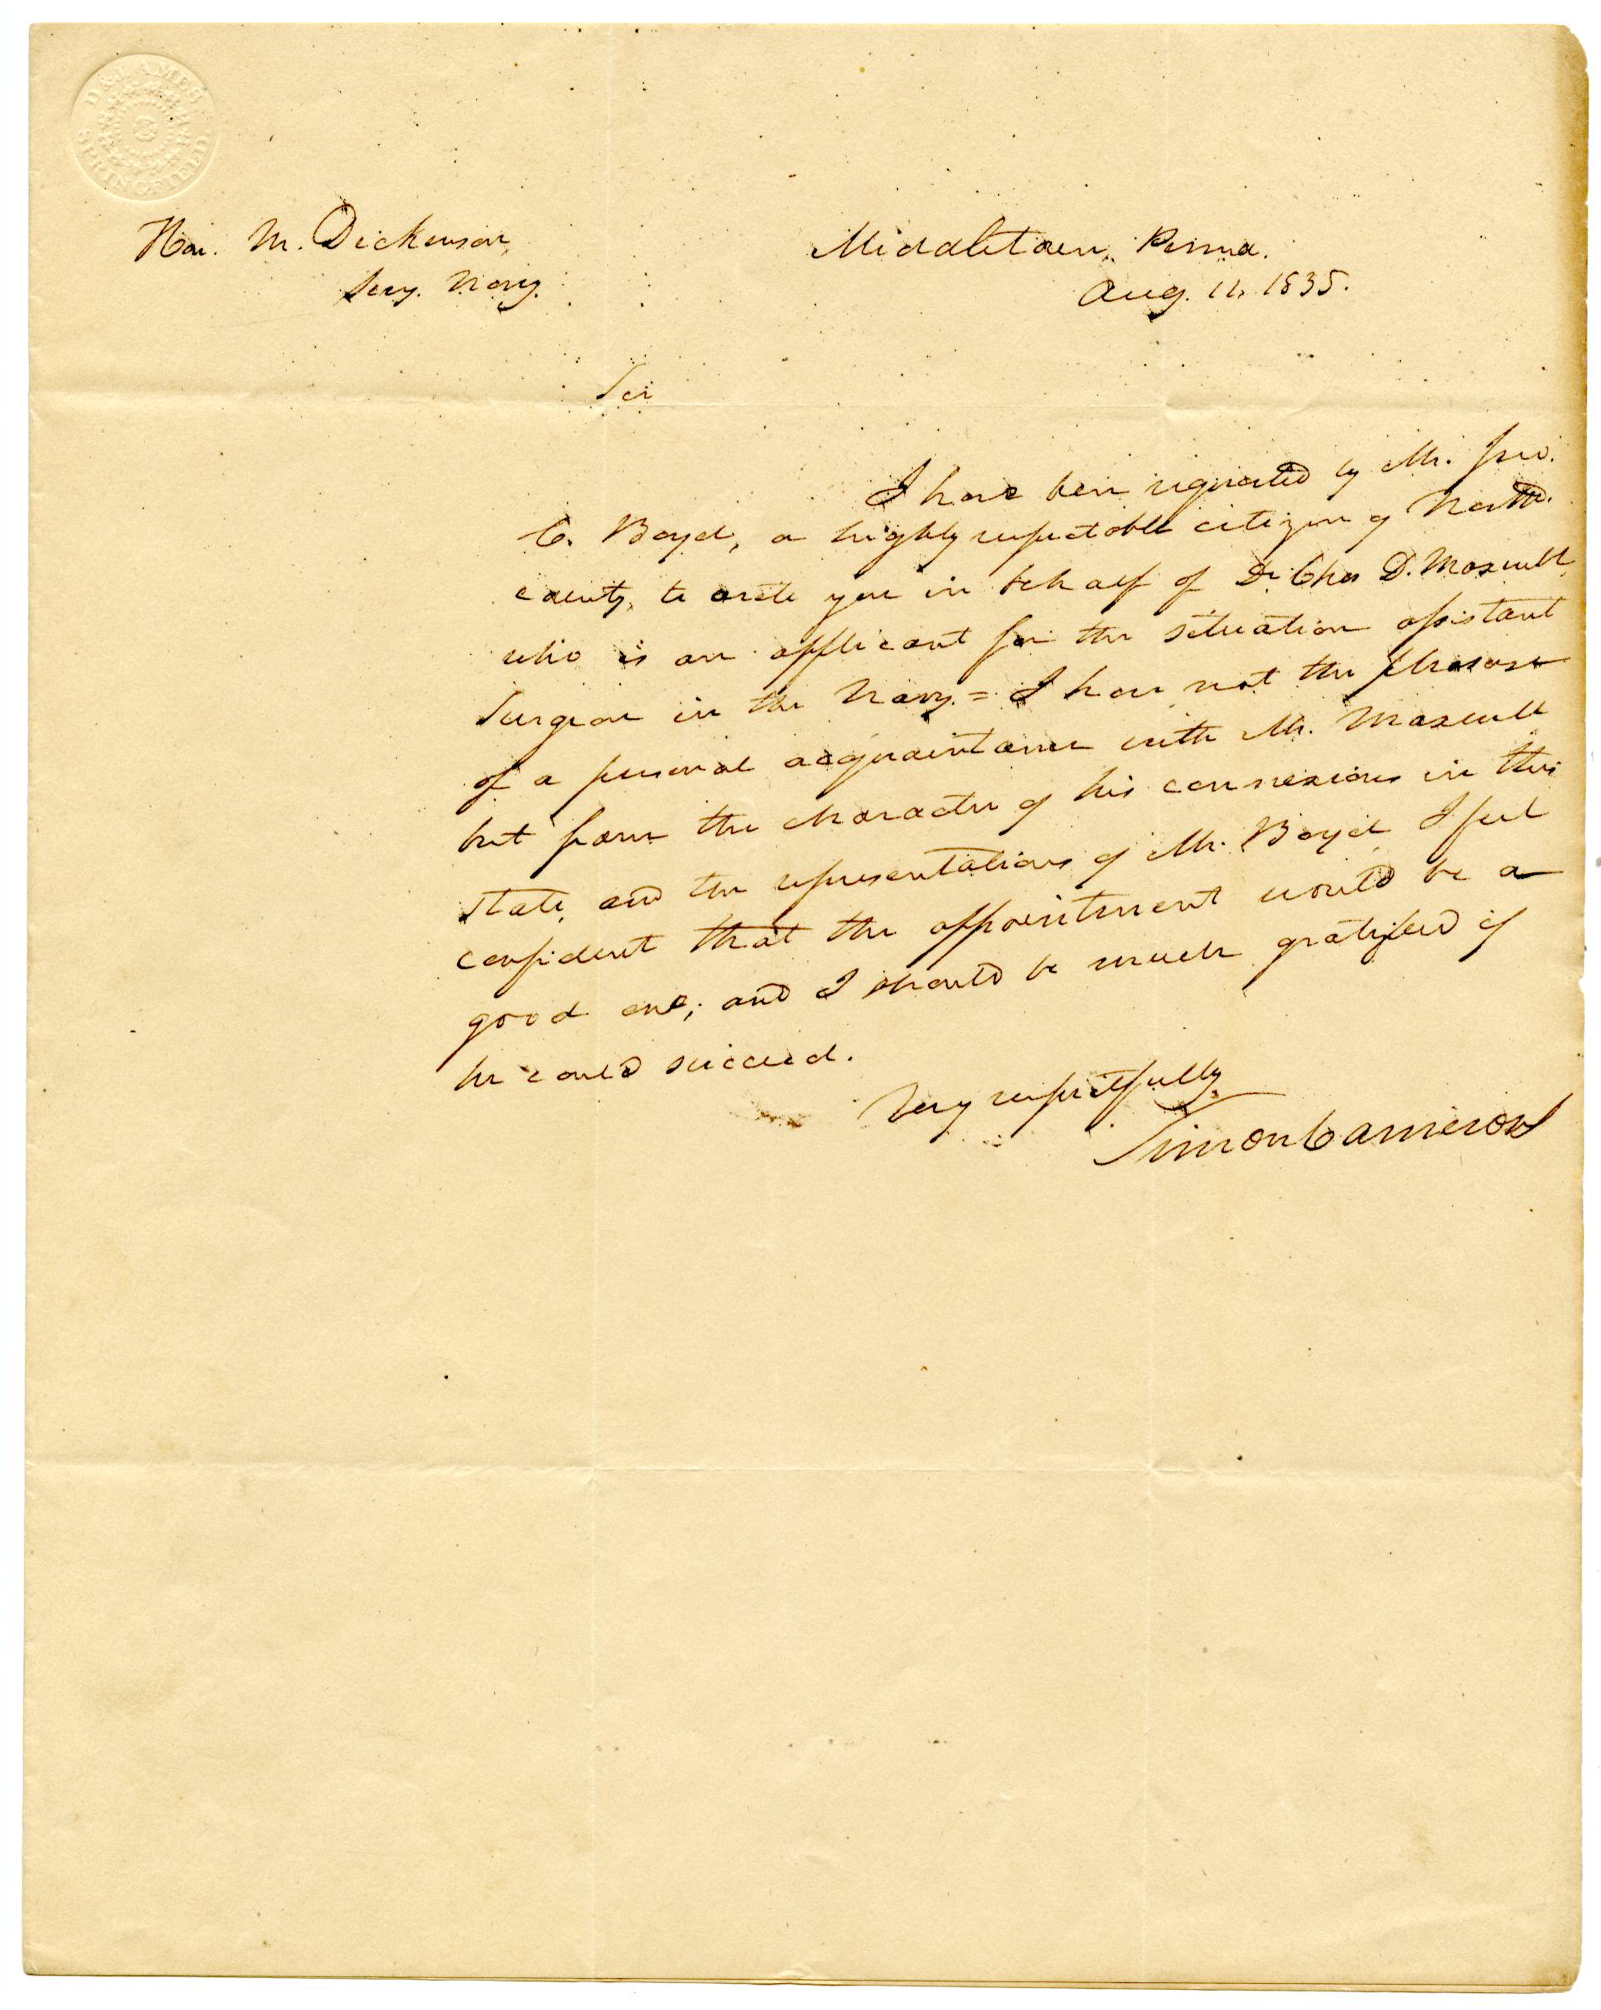 D & J AMES
SPRINGFIELD
Hon. M. Dickenson,
Secy. Navy.
Middletown, Penna.
Aug. 11, 1835.
Sir
I have been requested by Mr. Jno.
C. Boyd, a highly respectable citizen of North'd.
county, to write you in behalf of Dr. Chas D. Maxwell,
who is an applicant for the situation assistant
Surgeon in the Navy. = I have not the pleasure
of a personal acquaintance with Mr. Maxwell
but from the character of his connexions in this
state, and the representations of Mr. Boyd, I feel
confident that the appointment would be a
good one; and I should be much gratified if
he could succeed.
Very respectfully,
Simon Cameron